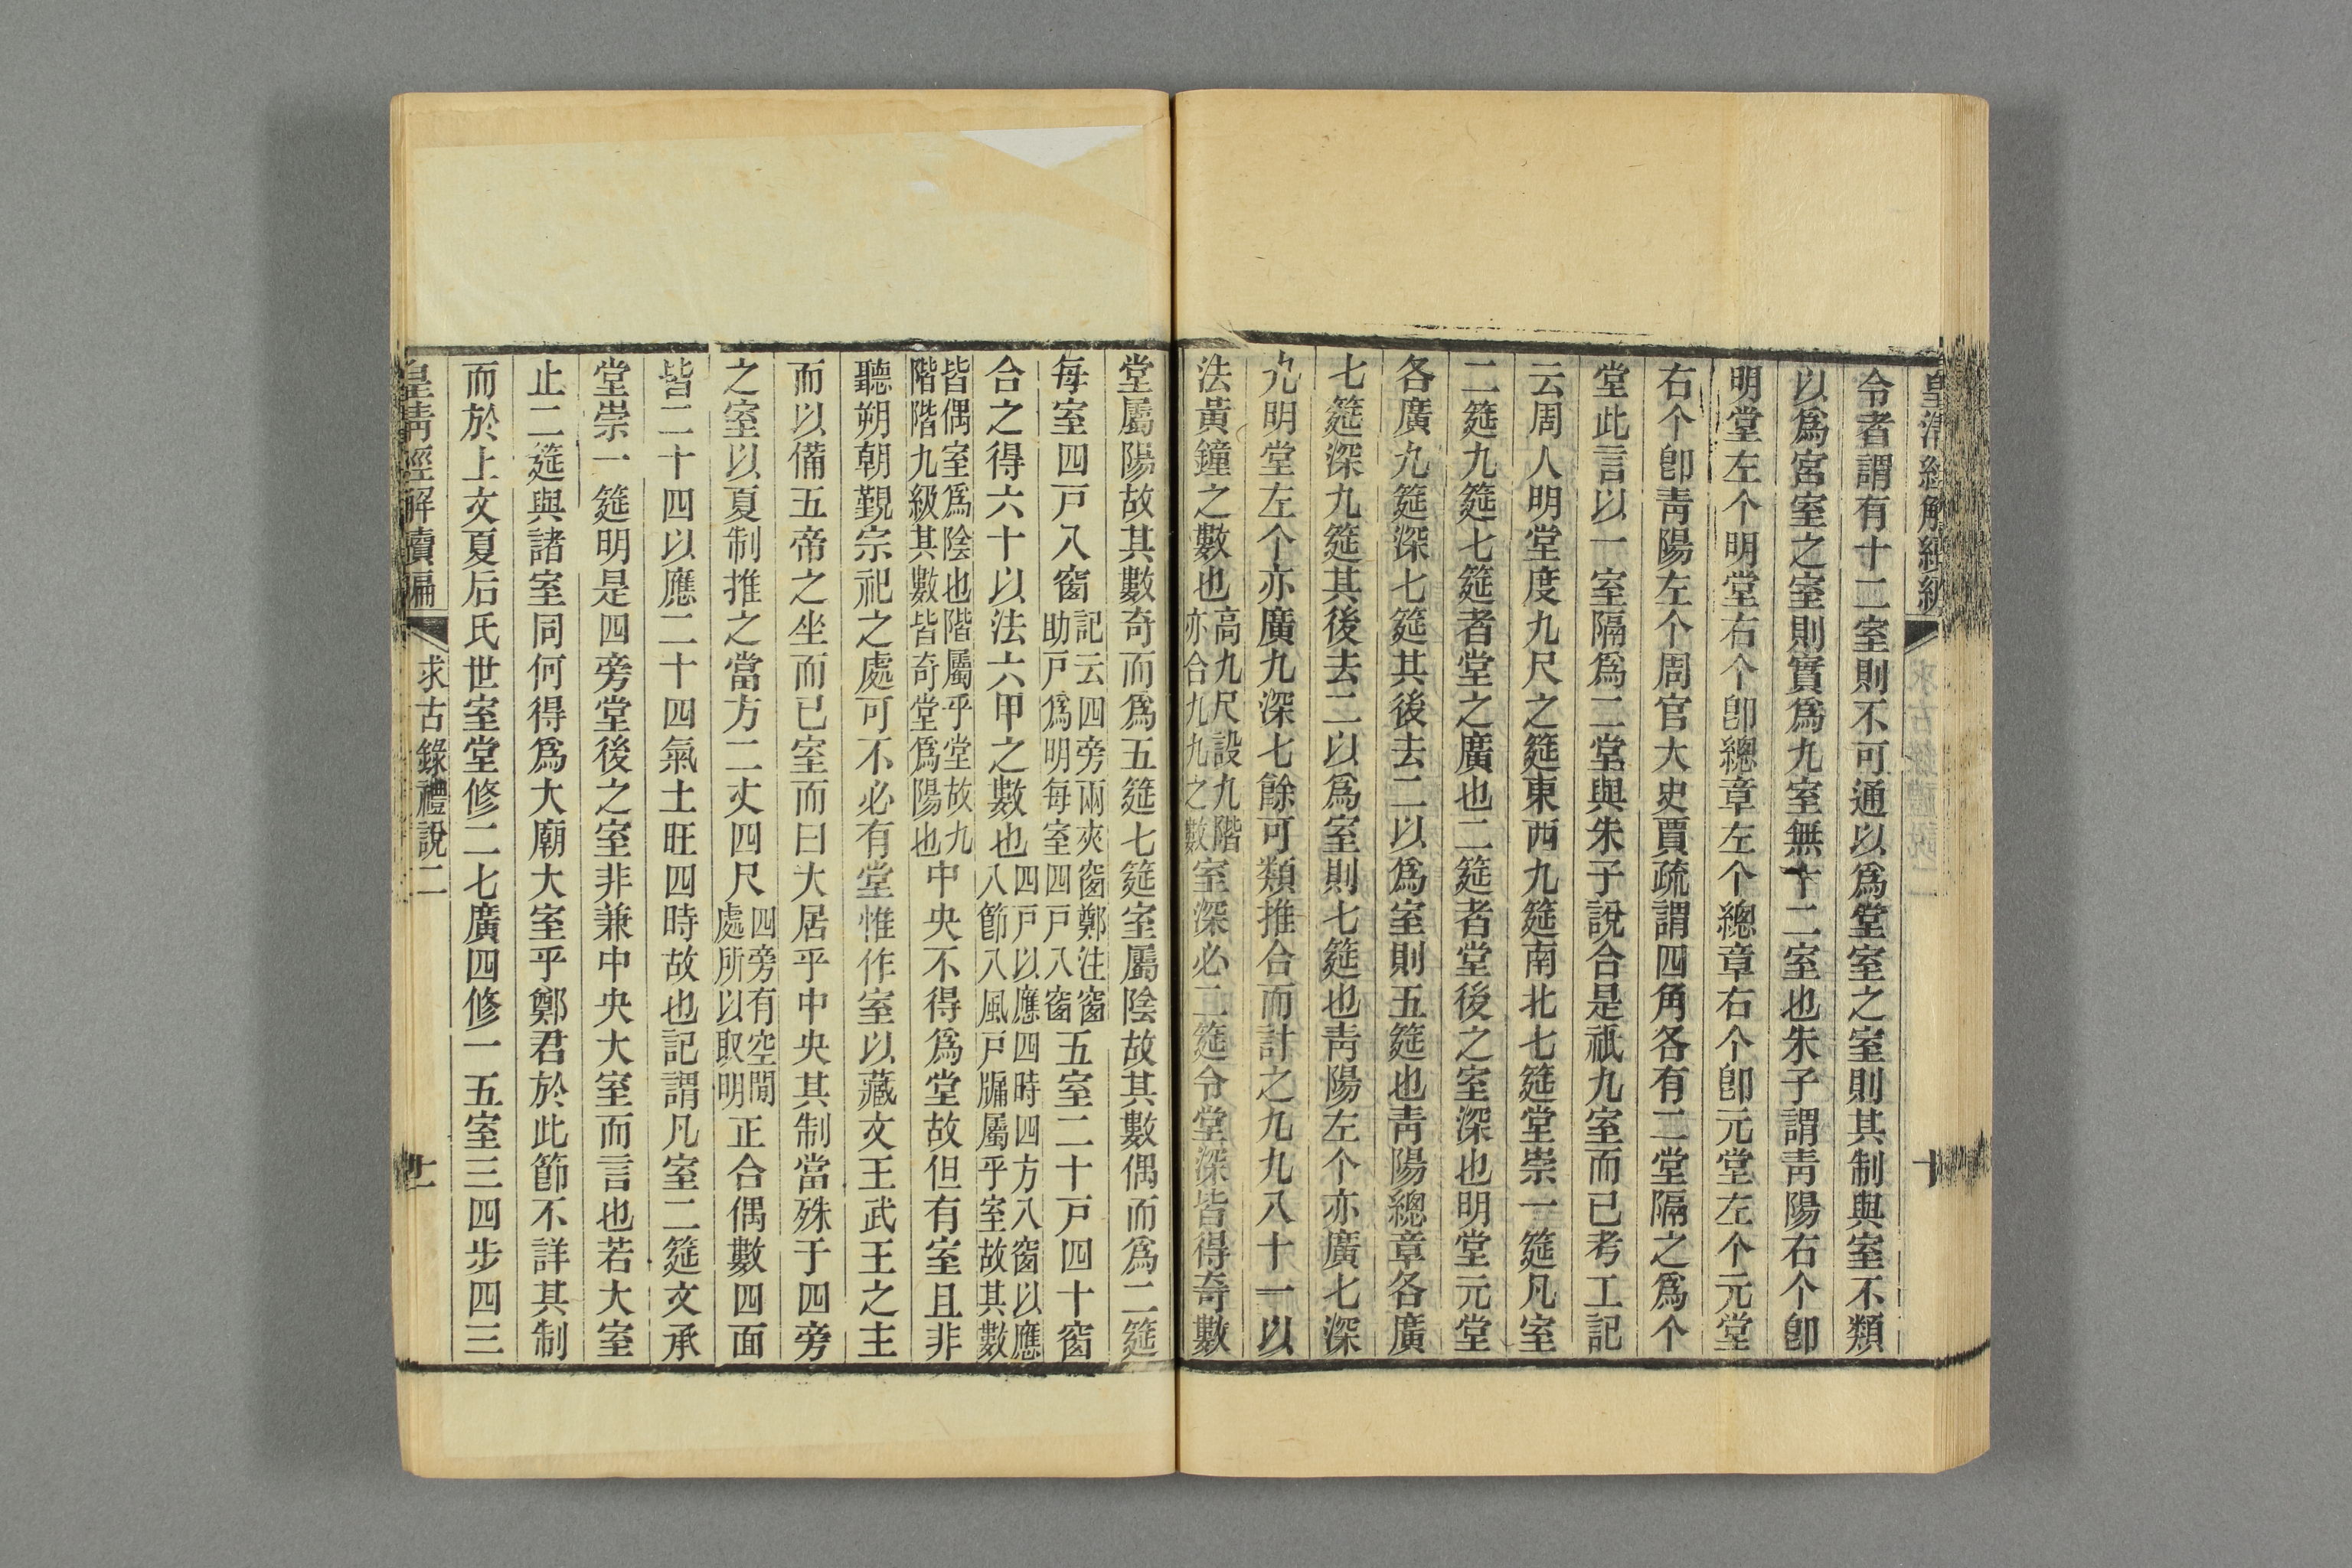 皇清經解續編
十
令者謂有十二室則不可通以爲堂室之室則其制與室不類
以爲宮室之室則實爲九室無十二室也朱子謂靑陽右个卽
明堂左个明堂右个卽總章左个總章右个卽元堂左个元堂
右个卽靑陽左个周官大史賈疏謂四角各有二堂隔之爲个
堂此言以一室隔爲二堂與朱子說合是祇九室而已考工記
云周人明堂度九尺之筵東西九筵南北七筵堂崇一筵凡室
二筵九筵七筵者堂之廣也二筵者堂後之室深也明堂元堂
各廣九筵深七筵其後去二以爲室則五筵也靑陽總章各廣
七筵深九筵其後去二以爲室則七筵也靑陽左个亦廣七深
九明堂左个亦廣九深七餘可類推合而計之九九八十一以
法黃鐘之數也高九尺設九階亦合九九之數室深必二筵令堂深皆得奇數
堂屬陽故其數奇而爲五筵七筵室屬陰故其數偶而爲二筵
每室四戸八窗記云四旁兩夾窗鄭注窗助戸爲明每室四戸八窗五室二十戸四十窗
合之得六十以法六甲之數也四戸以應四時四方八窗以應八節八風戸牖屬乎室故其數
皆偶室爲陰也階屬乎堂故九階階九級其數皆奇堂爲陽也中央不得爲堂故但有室且非
聽朔朝覲宗祀之處可不必有堂惟作室以藏文王武王之主
而以備五帝之坐而已室而曰大居乎中央其制當殊于四旁
之室以夏制推之當方二丈四尺四旁有空閒處所以取明正合偶數四面
皆二十四以應二十四氣土旺四時故也記謂凡室二筵文承
堂崇一筵明是四旁堂後之室非兼中央大室而言也若大室
止二筵與諸室同何得爲大廟大室乎鄭君於此節不詳其制
而於上文夏后氏世室堂修二七廣四修一五室三四步四三
皇淸經解續編
求古錄禮說二
十一